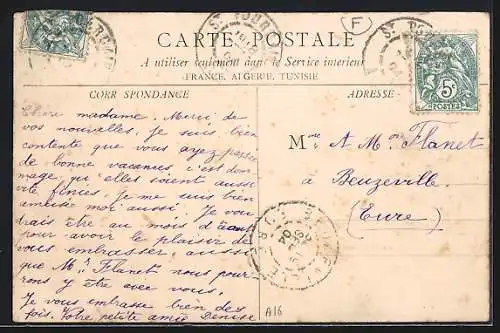 CARTE POSTALE
A utiliser seulement dans le Service interieur
(FRANCE, ALGERIE, TUNISIE
CORRESPONDANCE
ADRESSE
F
5c
POSTES
Chère madame. Merci de
vos nouvelles, je suis bien
contente que vous ayez passer
de bonne vacances, c'est dom
mage, qu'elles soient aussi
vite finces, je me suis bien
amusée moi aussi. Je vou
drais être au mois d'août
pour avoir le plaisir de
vous embrasser, aussi
que Mr Flanet nous pour-
rons y être avec vous.
Je vous embrasse bien des
fois. Votre petite amie Denise
Mme A Mon Flanet
à Beuzeville
(Eure)
A16